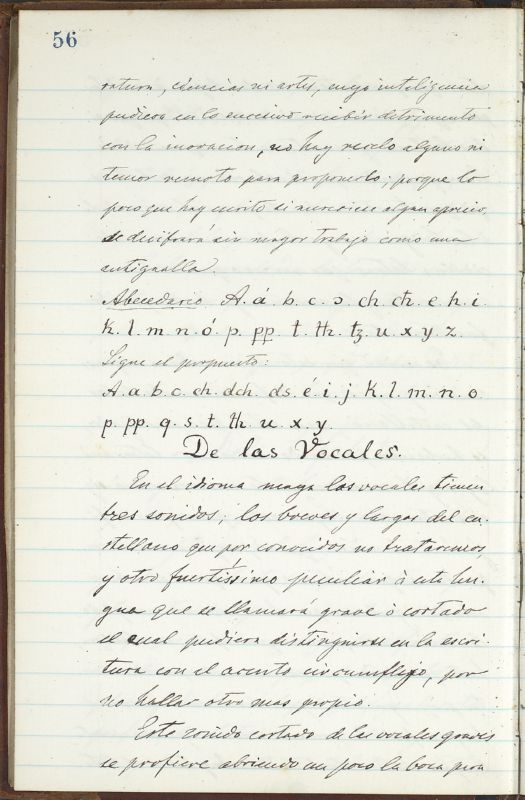 56
ratura, ciencias ni artes, cuya inteligencia
pudiera en lo sucesivo recibir detrimento
con la inovacion, no hay recelo alguno ni
temor remoto para proponerlo; porque lo
poco que hay escrito si mereciese algun aprecio,
se decifrará sin mayor trabajo como una
antigualla.
Abecedario A. á. b. c. ɔ. ch. cħ. e. h. i.
k. l. m. n. ó. p. pp. t. tħ. tz. u. x y. z.
Sigue el propuesto:
A. a. b. c. ch. dch. ds. é. i. j. k. l. m. n. o.
p. pp. q. s. t. th. u. x. y.
De las Vocales.
En el idioma maya las vocales tienen
tres sonidos; los breves y largos del ca-
stellano que por conocidos no trataremos,
y otro fuertíssimo peculiar á esta len-
gua que se llamará grave ó cortado
el cual pudiera distinguirse en la escri-
tura con el acento circumflejo, por
no hallar otro mas propio.
Este sonido cortado de las vocales graves
se profiere abriendo un poco la boca para